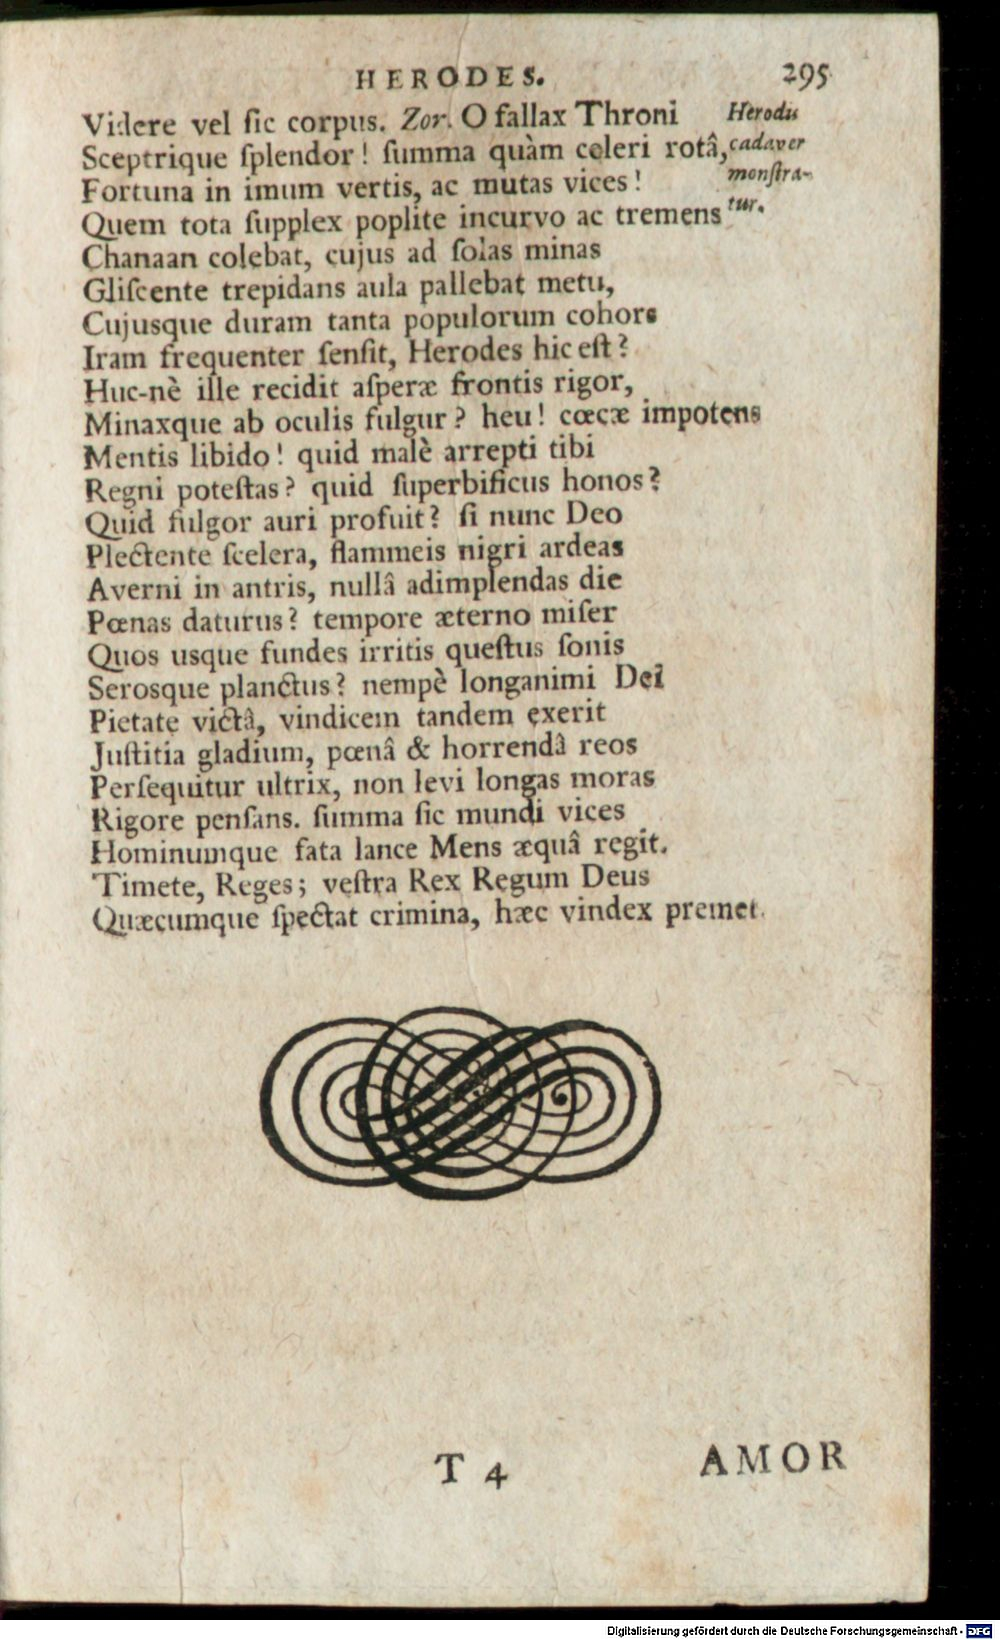 HERODES. 295
Videre vel ſic corpus. Zor. O fallax Throni
Sceptrique ſplendor! ſumma quàm celeri rotâ,
Fortuna in imum vertis, ac mutas vices!
Quem tota ſupplex poplite incurvo ac tremens
Herodis
cadaver
monſtra-
tur.
Chanaan colebat, cujus ad ſolas minas
Gliſcente trepidans aula pallebat metu,
Cujusque duram tanta populorum cohors
Iram frequenter ſenſit, Herodes hic eſt?
Huc-nè ille recidit aſperæ frontis rigor,
Minaxque ab oculis fulgur? heu! cœcæ impotens
Mentis libido! quid malè arrepti tibi
Regni poteſtas? quid ſuperbificus honos?
Quid fulgor auri profuit? ſi nunc Deo
Plectente ſcelera, flammeis nigri ardeas
Averni in antris, nullâ adimplendas die
Pœnas daturus? tempore æterno miſer
Quos usque fundes irritis queſtus ſonis
Serosque planctus? nempè longanimi Dei
Pietate victâ, vindicem tandem exerit
Juſtitia gladium, pœnâ & horrendâ reos
Perſequitur ultrix, non levi longas moras
Rigore penſans. ſumma ſic mundi vices
Hominumque fata lance Mens æquâ regit.
Timete, Reges; veſtra Rex Regum Deus
Quæcumque ſpectat crimina, hæc vindex premet.
T 4 AMOR
Digitalisierung gefördert durch die Deutsche Forschungsgemeinschaft - DFG